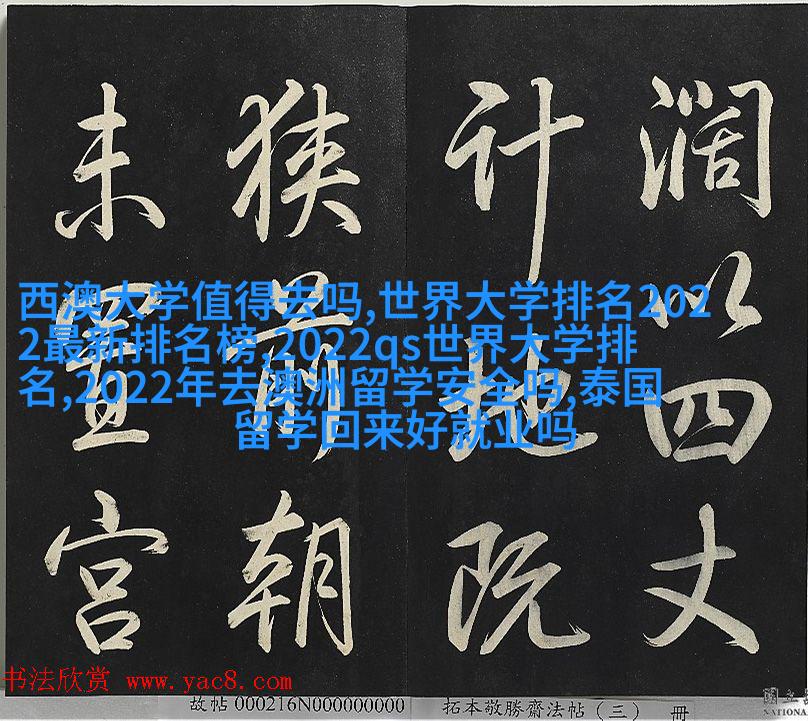 濶以四丈
計地既
狹前朝
未置宮
西澳大学值得去吗,世界大学排名202
2最新排名榜,2022qs世界大学排
名,2022年去澳洲留学安全吗,泰国
留学回来好就业吗
书法欣赏 www.yac8.com
故帖 000216N000000000 拓本敬勝齋法帖（三） 冊
國立
NATIONA